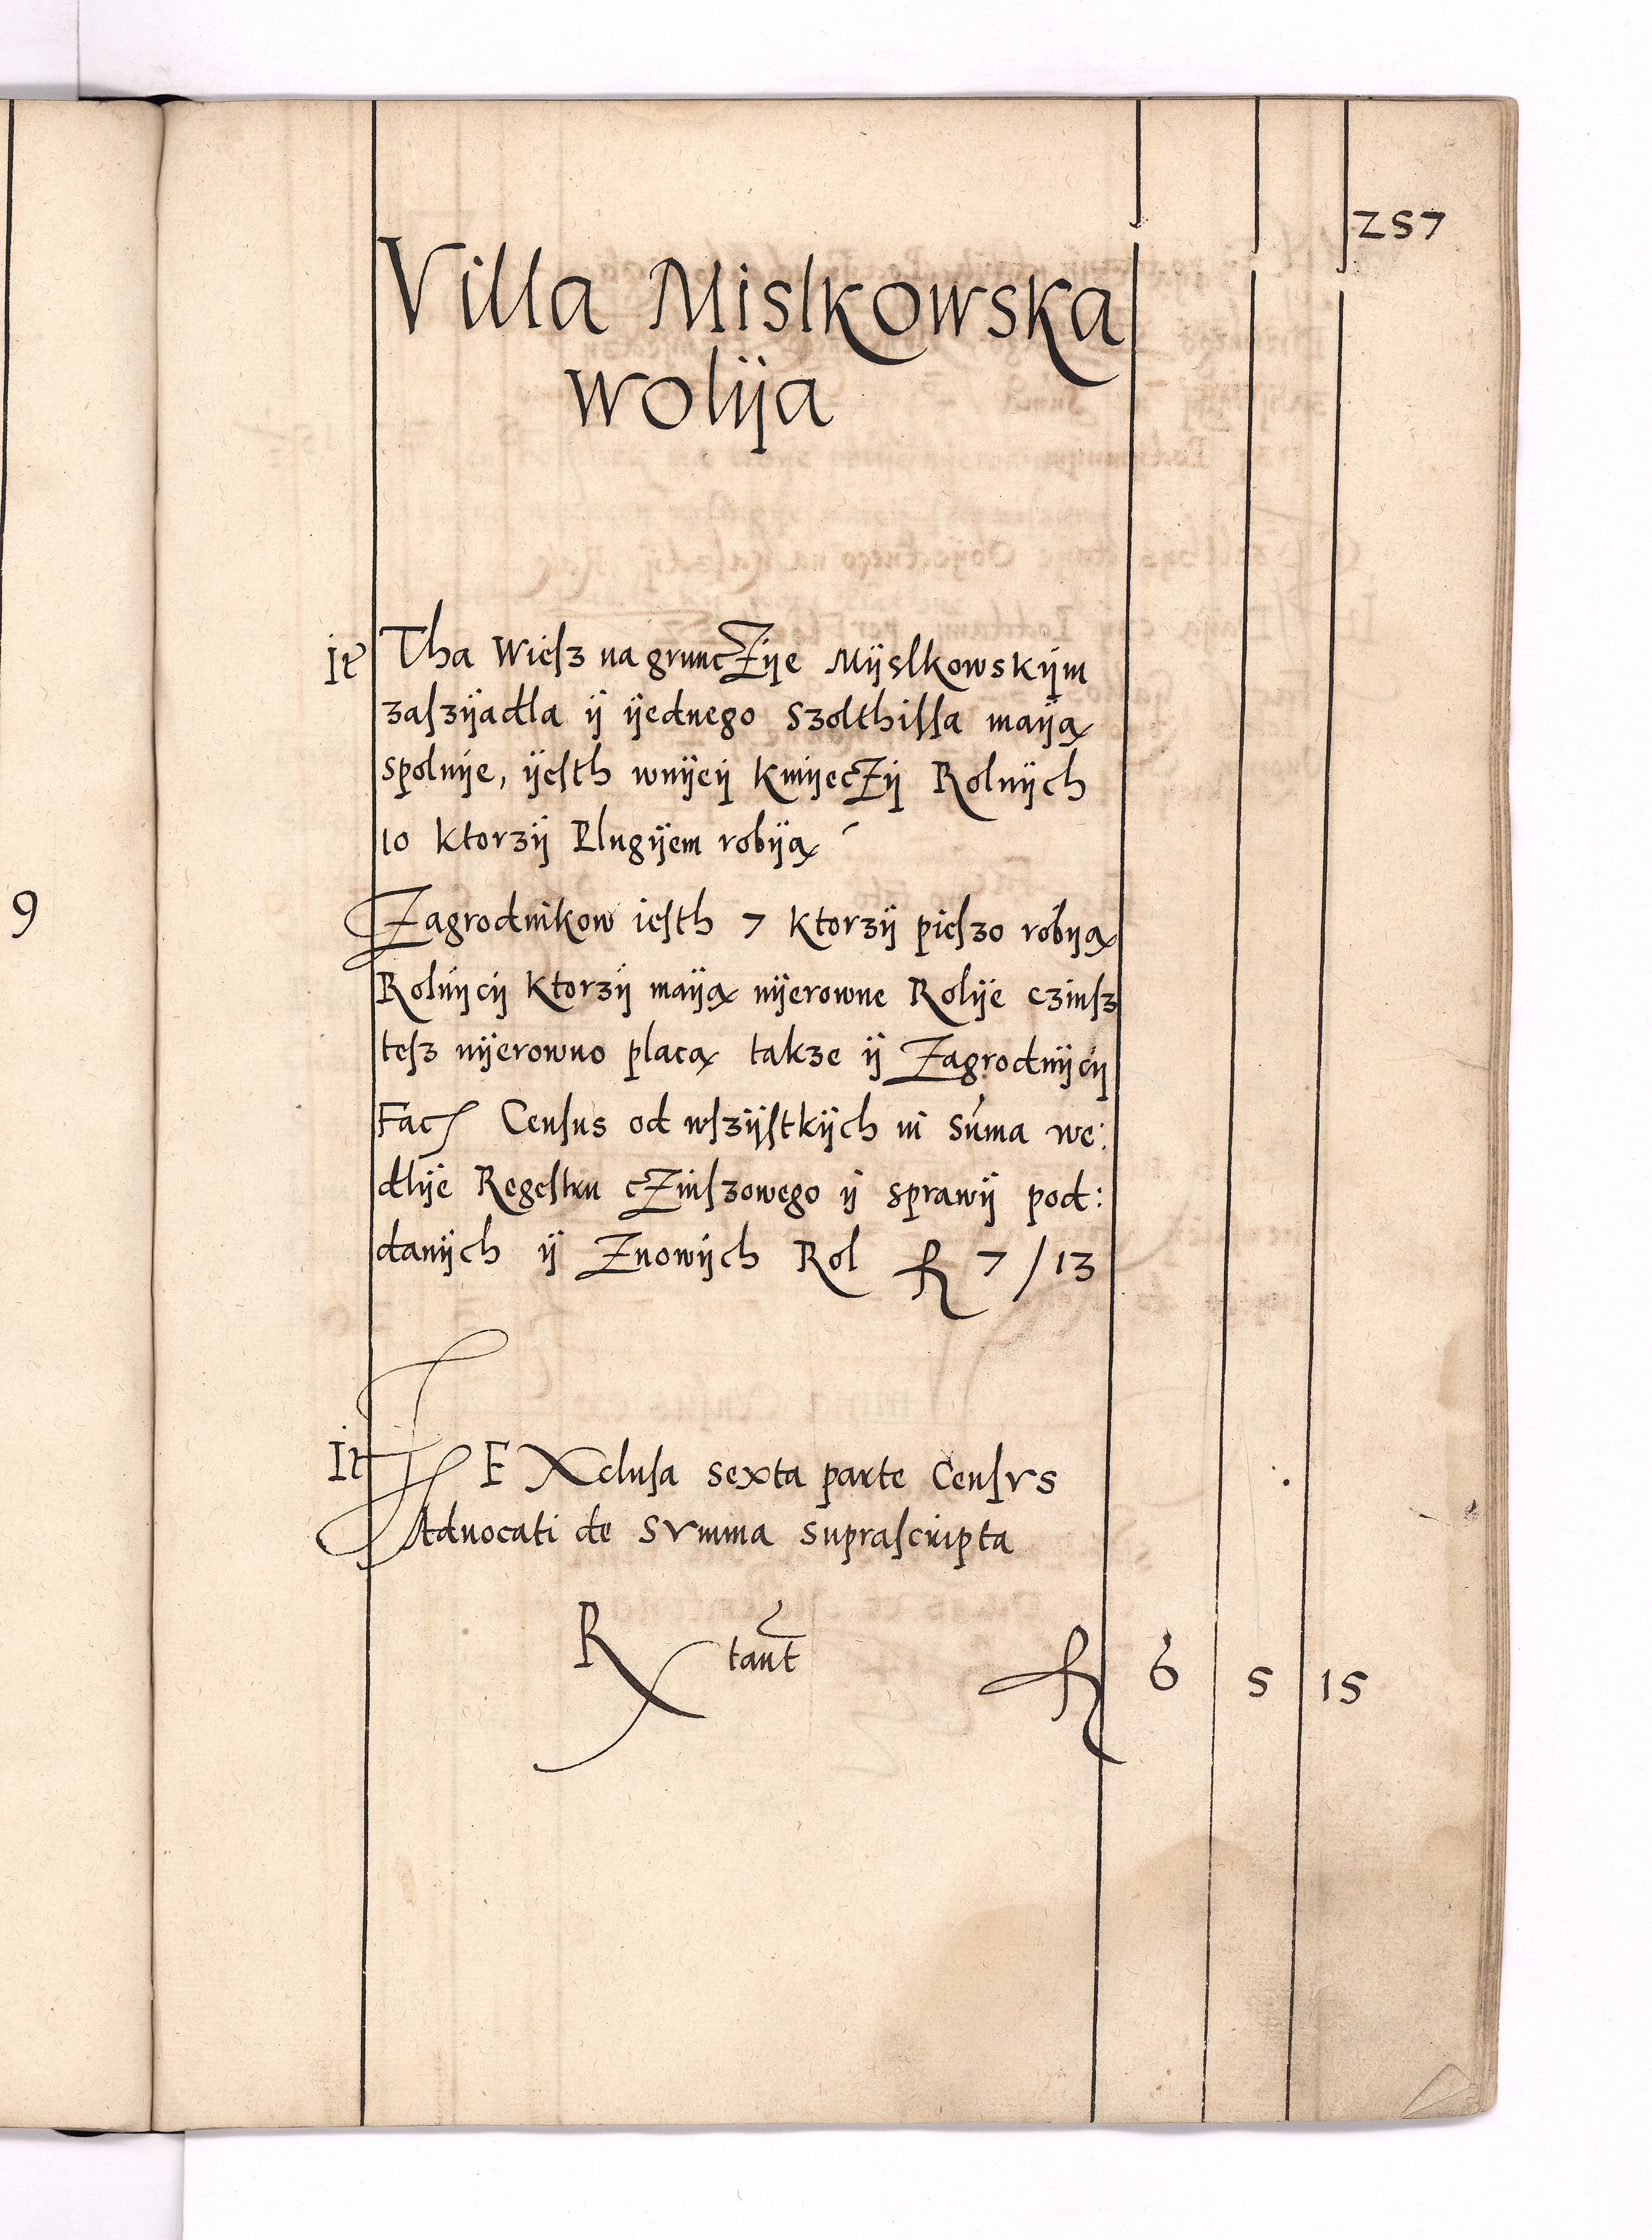 257
Villa Mislkowska
wolija
It Tha Wiesz na gruncZije Mÿslkowskÿm
zaszÿadla ÿ ÿednego Szolthissa maÿą
spolnÿe, ÿesth wnÿcÿ KmÿecZÿ Rolnÿch
10 ktorzÿ Plugÿem robÿą
Zagrodnikow iesth 7 ktorzÿ pieszo robÿą
Rolnÿcÿ ktorzÿ maÿą nÿerowne Rolÿe czinsz
tesz nÿerowno placą takze ÿ Zagrodnÿcÿ
Fac Census od wszÿstkÿch in Suma we:
dlÿe Regestru cZinszowego ÿ sprawÿ pod:
danÿch ÿ Znowÿch Rol fl 7 / 13
It EXclusa sexta parte Censvs
Aduocati de Svmma suprascripta
R tant fl 6 5 15
9